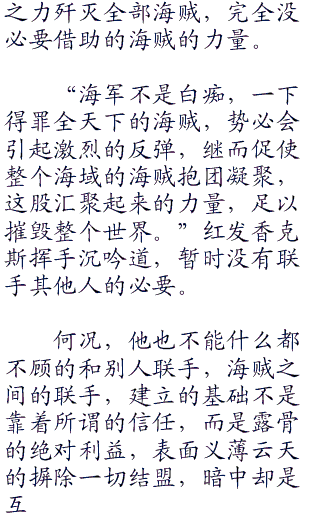 之力歼灭全部海贼，完全没
必要借助的海贼的力量。
“海军不是白痴，一下
得罪全天下的海贼，势必会
引起激烈的反弹，继而促使
整个海域的海贼抱团凝聚，
这股汇聚起来的力量，足以
摧毁整个世界。”红发香克
斯挥手沉吟道，暂时没有联
手其他人的必要。
何况，他也不能什么都
不顾的和别人联手，海贼之
间的联手，建立的基础不是
靠着所谓的信任，而是露骨
的绝对利益，表面义薄云天
的摒除一切结盟，暗中却是
互